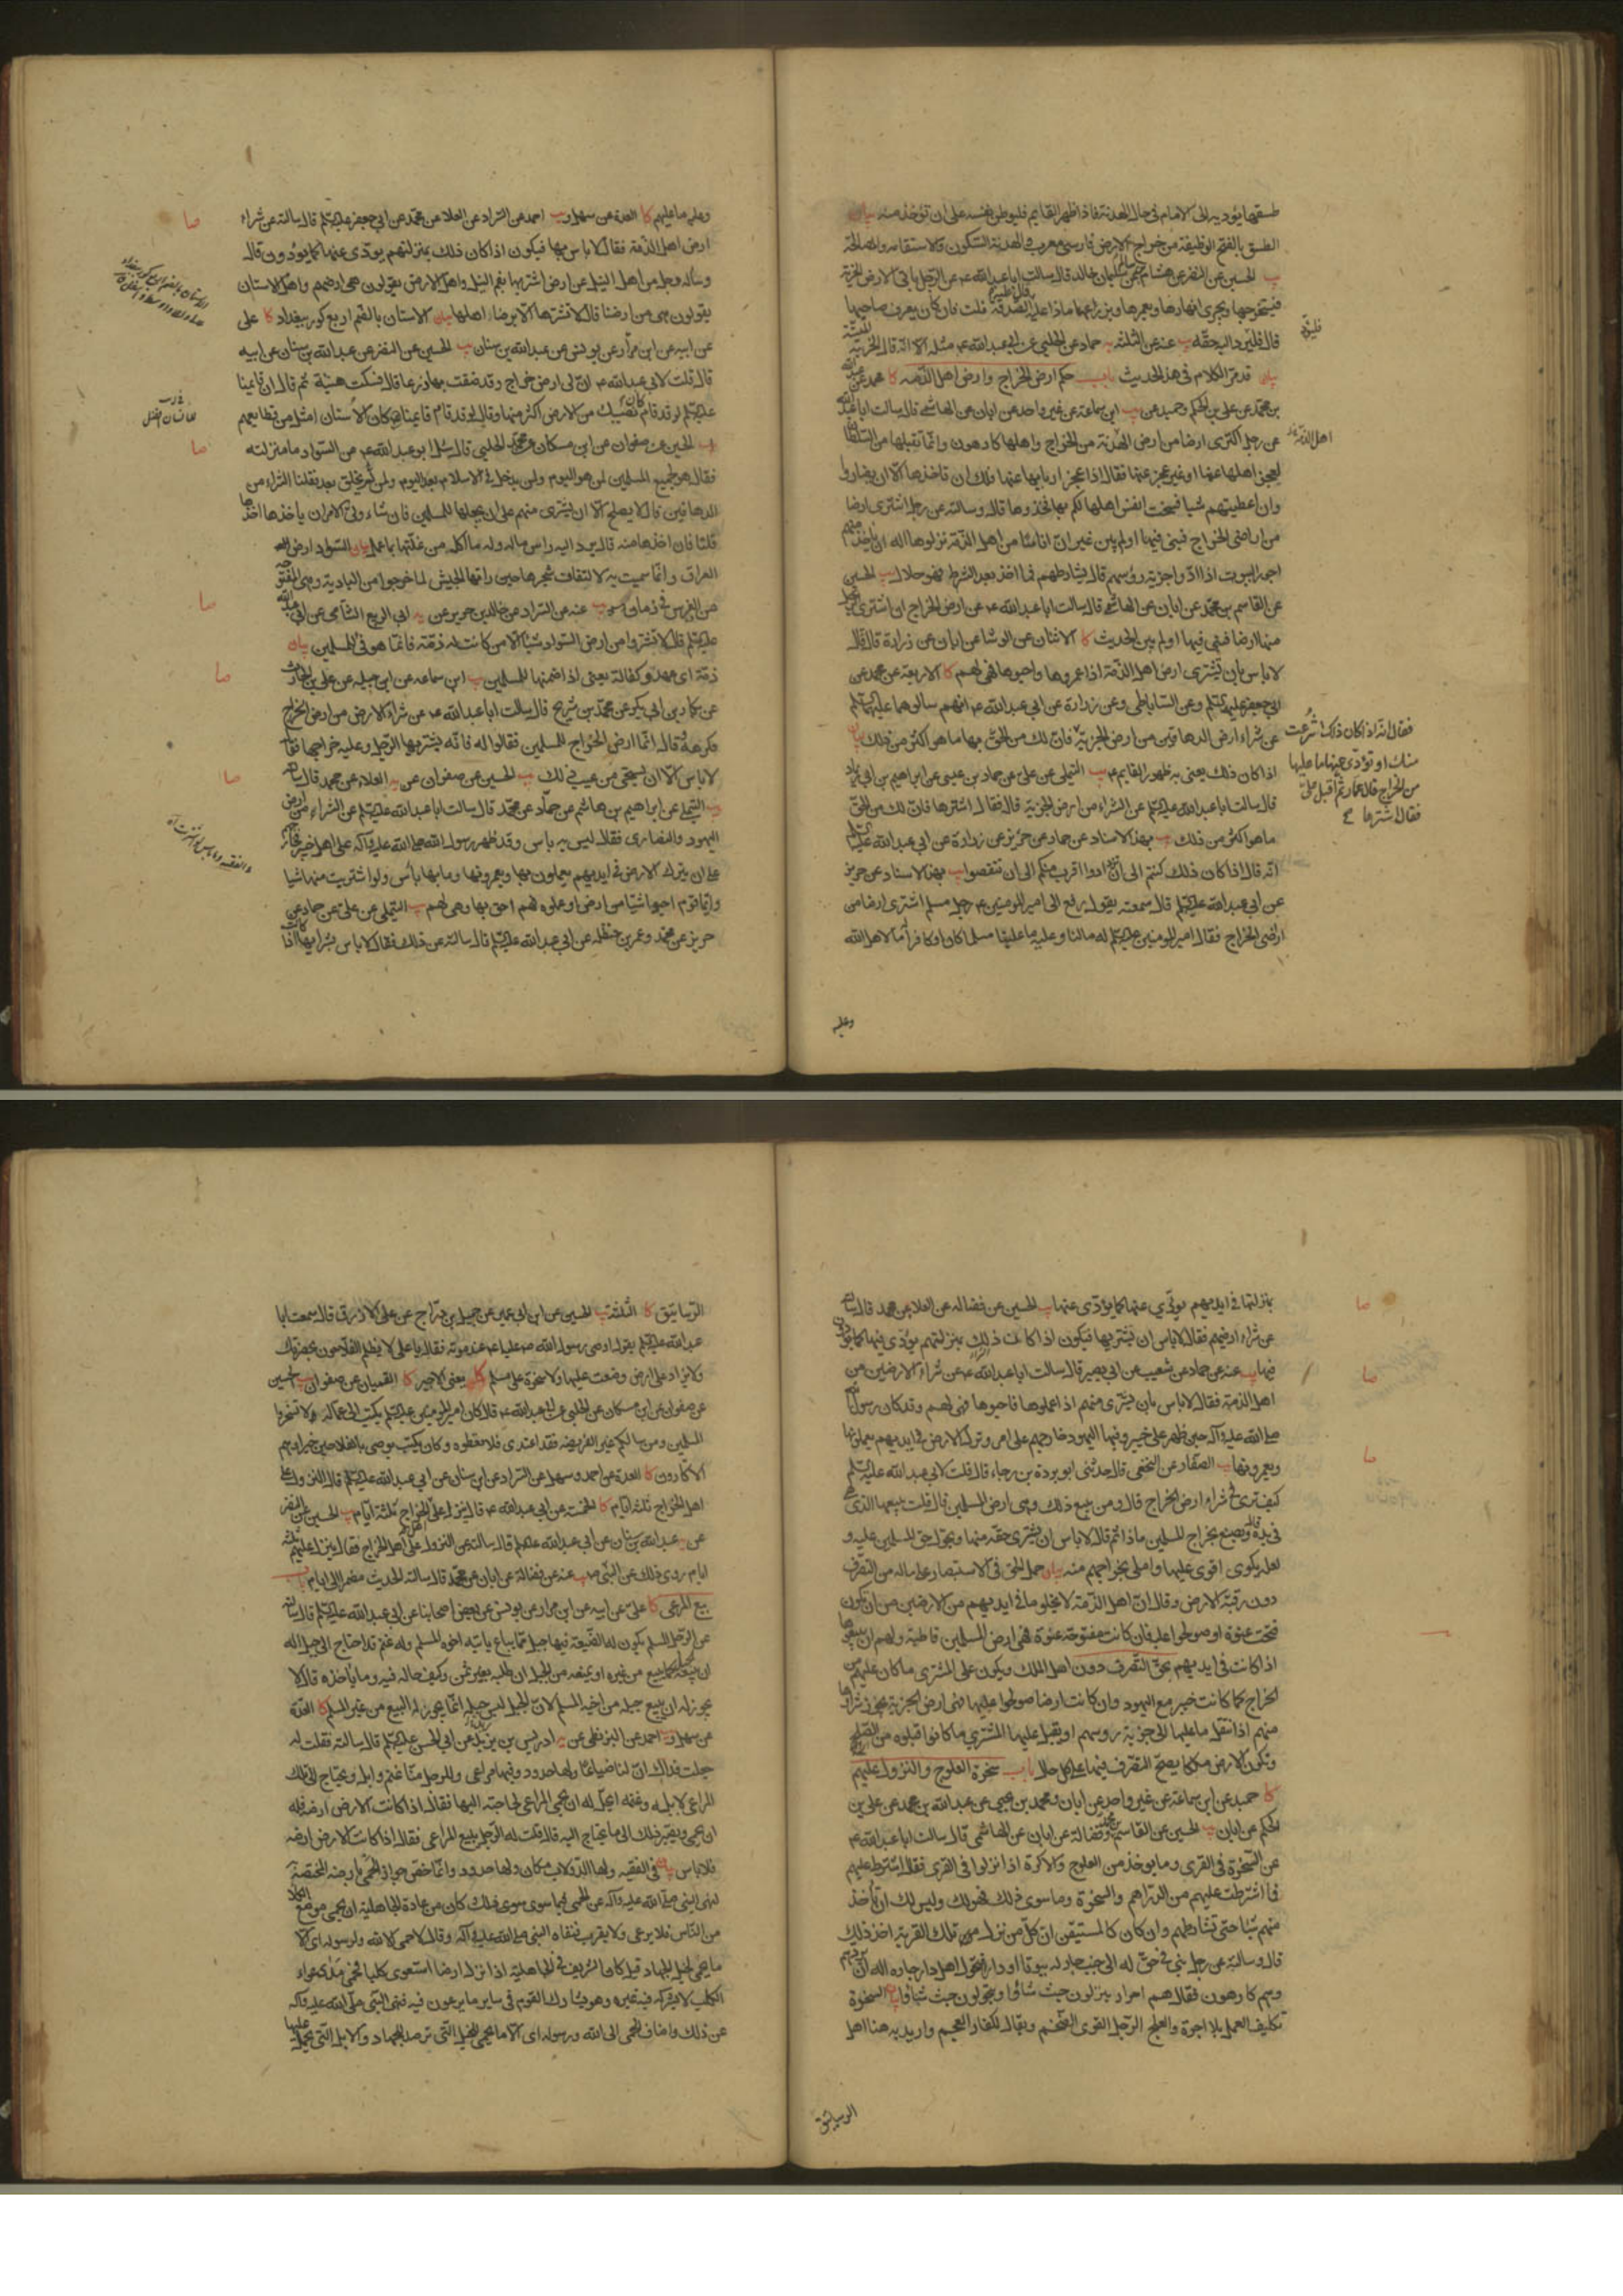 طسقها يؤديه الى الامام فى حال الهدنة فاذا ظهر القايم فليوطن نفسه على ان تؤخذ منه بيان
الطسق بالفتح الوظيفة من خراج الارض فارسى معرب والهدنة السكون والاستقامة
يب الحسين عن النضر عن هشام بن سالم عن سليمان بن خالد قال سالت ابا عبد الله ع عن الرجل ياتى الارض الخربة
فيستخرجها ويجرى انهارها ويعمرها ويزرعها ماذا عليه قال عليه الصدقة قلت فان كان يعرف صاحبها
قال فليرد اليه حقه يب عنه عن الثلثة يه حماد عن الحلبى عن ابى عبد الله ع مثله الا انه قال الخربة
بيان قد مر الكلام فى هذا الحديث باب حكم ارض الخراج وارض اهل الذمة كا
بن محمد عن على بن الحكم وحميد عن يب ابن سماعة عن غير واحد عن ابان عن الهاشمى قال سالت ابا عبد الله
عن رجل اكترى ارضا من ارض اهل الذمة من الخراج واهلها كارهون وانما تقبلها من السلطان
لعجز اهلها عنها او غير عجز عنها فقال اذا عجز اربابها عنها فلك ان تاخذها الا ان يضاروا
وان اعطيتهم شيا فسخت انفس اهلها لكم بها فخذوها قال وسالته عن رجل اشترى ارضا
من اراضى الخراج فبنى فيها او لم يبن غير ان اناسا من اهل الذمة نزلوها اله ان ياخذ منهم
اجور البيوت اذا ادوا جزية رؤسهم قال يشارطهم فما اخذ بعد الشرط فهو حلال يب الحسين
عن القاسم بن محمد عن ابان عن الهاشمى قال سالت ابا عبد الله ع عن ارض الخراج
منها ارضا فبنى فيها او لم يبن الحديث كا الاثنان عن الوشا عن ابان عن زرارة قال قال
لا باس بان تشترى ارض اهل الذمة اذا عمروها واحيوها فهى لهم كا الاربعة عن محمد عن
ابى جعفر عليه السلم وعن الساباطى وعن زرارة عن ابى عبد الله ع انهم سالوهما عليهما السلم
عن شراء ارض الدهاقين من ارض الجزية فان لك من الحق بها ما هو اكثر من ذلك بيان
اذا كان ذلك يعنى به ظهور القايم ع يب التيملى عن على عن حماد بن عيسى عن ابراهيم بن ابى زياد
قال سالت ابا عبد الله عليه السلم عن الشراء من ارض الجزية قال فقال اشترها فان لك من الحق
ما هو اكثر من ذلك يب بهذا الاسناد عن حماد عن حريز عن زرارة عن ابى عبد الله عليه السلم
انه قال اذا كان ذلك كنتم الى ان تزادوا اقرب منكم الى ان تنقصوا يب بهذا الاسناد عن حريز
عن ابى عبد الله عليه السلم قال سمعته يقول رفع الى امير المومنين ع رجل مسلم اشترى ارضا من
اراضى الخراج فقال امير المومنين عليه السلم له ما لنا وعليه ما علينا مسلما كان او كافرا ما لاهل الله
اهل الذمة
فقال انه اذا كان ذلك انتزعت
منك او تؤدى عنها ما عليها
من الخراج قال عمار ثم اقبل على
فقال اشترها
وعليه
وعليه ما عليهم كا العدة عن سهل و يب احمد عن السراد عن العلا عن محمد عن ابى جعفر عليه السلم قال سالته عن شراء
ارض اهل الذمة فقال لا باس بها فيكون اذا كان ذلك بمنزلتهم يودى عنها كما يودون قال
وساله رجل من اهل النيل عن ارض اشتريها بفم النيل واهل الارض يقولون هى ارضهم واهل الاستان
يقولون هى من ارضنا قال لا تشترها الا برضاء اهلها بيان الاستان بالضم اربع كور ببغداد كا على
عن ابيه عن ابن مرار عن يونس عن عبد الله بن سنان يب الحسين عن النضر عن عبد الله بن سنان عن ابيه
قال قلت لابى عبد الله ع ان لى ارض خراج وقد ضقت بها ذرعا قال فسكت هنيئة ثم قال ان قايمنا
عليه السلم لو قد قام كان نصيبك من الارض اكثر منها وقال لو قد قام قايمنا كان الاستان امثل من قطايعهم
يب الحسين عن صفوان عن ابن مسكان عن محمد الحلبى قال سئل ابو عبد الله ع عن السواد ما منزلته
فقال هو لجميع المسلمين لمن هو اليوم ولمن يدخل فى الاسلام بعد اليوم ولمن لم يخلق بعد فقلنا الشراء من
الدهاقين قال لا يصلح الا ان يشترى منهم على ان يجعلها للمسلمين فان شاء ولى الامر ان ياخذها اخذها
قلنا فان اخذها منه قال يرد اليه راس ماله وله ما اكل من غلتها بما عمل بيان السواد ارض
العراق وانما سميت به لالتفاف شجرها حين راتها الجيش لما خرجوا من البادية وهى المفتوحة
من الفرس فى زمان يب عنه عن السراد عن خالد بن جرير عن يه ابى الربيع الشامى عن ابى عبد الله
عليه السلم قال لا تشتروا من ارض السواد شيا الا من كانت له ذمة فانما هو فى للمسلمين بيان
ذمة اى عهد وكفالة يعنى اذا ضمنها للمسلمين يب ابن سماعه عن ابن جبله عن على بن الحارث
عن بكار بن ابى بكر عن محمد بن شريح قال سالت ابا عبد الله ع عن شراء الارض من ارض الخراج
فكرهه وقال انما ارض الخراج للمسلمين فقالوا له فانه يشتريها الرجل وعليه خراجها فقال
لا باس الا ان يستحيى من عيب ذلك يب الحسين عن صفوان عن يه العلاء عن محمد قال سالته
يب التيملى عن ابراهيم بن هاشم عن حماد عن محمد قال سالت ابا عبد الله عليه السلم عن الشراء من ارض
اليهود والنصارى فقال ليس به باس وقد ظهر رسول الله صلى الله عليه وآله على اهل خيبر
على ان يترك الارض فى ايديهم يعملون بها ويعمرونها وما بها باس ولو اشتريت منها شيا
وايما قوم احيوا شيا من ارض او عملوه فهم احق بها وهى لهم يب التيملى عن على عن حماد عن
حريز عن محمد وعمر بن حنظله عن ابى عبد الله عليه السلم قال سالته عن ذلك فقال لا باس بشرايها اذا كانت
صا
صا
صا
صا
صا
بمنزلتها فى ايديهم يودى عنها كما يؤدى عنها يب الحسين عن فضاله عن العلا عن محمد قال سالته
عن شراء ارضهم فقال لا باس ان تشتريها فيكون اذا كانت ذلك بمنزلتهم يؤدى فيها كما يودون
فيها يب عنه عن حماد عن شعيب عن ابى بصير قال سالت ابا عبد الله ع عن شراء الارضين من
اهل الذمة فقال لا باس بان يشترى منهم اذا عملوها فاحيوها فهى لهم وقد كان رسول الله
صلى الله عليه وآله حين ظهر على خيبر وفيها اليهود خارجهم على امر وترك الارض فى ايديهم يعملونها
ويعمرونها يب الصفار عن النخعى قال حدثنى ابو بردة بن رجاء قال قلت لابى عبد الله عليه السلم
كيف ترى فى شراء ارض الخراج قال ومن يبيع ذلك وهى ارض المسلمين قال قلت يبيعها الذى هى
فى يده قال ويصنع بخراج المسلمين ماذا ثم قال لا باس ان يشترى حقه منها ويحول حق المسلمين عليه و
لعله يكون اقوى عليها واملى بخراجهم منه بيان حمل الحق فى الاستبصار على ماله من التصرف
دون رقبة الارض وقال ان اهل الذمة لا يخلو ما فى ايديهم من الارضين من ان يكون
فتحت عنوة او صولحوا عليه فان كانت مفتوحة عنوة فهى ارض المسلمين قاطبة ولهم ان يبيعوها
اذا كانت فى ايديهم بحق التصرف دون اصل الملك ويكون على المشترى ما كان عليهم من
الخراج كما كانت خيبر مع اليهود وان كانت ارضا صولحوا عليها فهى ارض الجزية يجوز شراؤها
منهم اذا انتقل ما عليها الى جزية روسهم او يقبل عليها المشترى ما كانوا قبلوه من الصلح
وتكون الارض ملكا يصح التصرف فيها على كل حال باب سخرة العلوج والنزول عليهم
كا حميد عن ابن سماعة عن غير واحد عن ابان ومحمد بن يحيى عن عبد الله بن محمد عن على بن
الحكم عن ابان يب الحسين عن القاسم بن محمد وفضالة عن ابان عن الهاشمى قال سالت ابا عبد الله ع
عن السخرة فى القرى وما يوخذ من العلوج والاكرة اذا نزلوا فى القرى فقال اشترط عليهم
فما اشترطت عليهم من الدراهم والسخرة وما سوى ذلك فهو لك وليس لك ان تاخذ
منهم شيا حتى تشارطهم وان كان كالمستيقن ان كل من نزل تلك القرية اخذ ذلك
قال وسالته عن رجل بنى فى حق له الى جنب جار له بيوتا او دارا فتحول اهل دار جاره اليه اله ان يردهم
وهم كارهون فقال هم احرار ينزلون حيث شاؤا ويتحولون حيث شاؤا بيان السخرة
تكليف العمل بلا اجرة والعلج الرجل القوى الضخم ويقال للكفار العجم واريد به هنا اهل
صا
صا
صا
الرساتيق
الرساتيق كا الثلثة يب الحسين عن ابن ابى عمير عن جميل بن دراج عن على الازرق قال سمعت ابا
عبد الله عليه السلم يقول اوصى رسول الله ص عليا ع عند موته فقال يا على لا يظلم الفلاحون بحضرتك
ولا يزاد على ارض وضعت عليها ولا سخرة على مسلم يعنى الاجير كا القميان عن صفوان يب الحسين
عن صفوان عن ابن مسكان عن الحلبى عن ابى عبد الله ع قال كان امير المومنين عليه السلم يكتب الى عماله لا تسخروا
المسلمين ومن سالكم غير الفريضه فقد اعتدى فلا تعطوه وكان يكتب يوصى بالفلاحين خيرا وهم
الاكارون كا العدة عن احمد وسهل عن السراد عن ابن سنان عن ابى عبد الله عليه السلم قال النزول على
اهل الخراج ثلثة ايام كا الخمسة عن ابى عبد الله ع قال ينزل على اهل الخراج ثلثة ايام يب الحسين عن النضر
عن يه عبد الله بن سنان عن ابى عبد الله عليه السلم قال سالته عن النزول على اهل الخراج فقال ينزل عليهم ثلثة
ايام روى ذلك عن النبى ص يب عنه عن فضالة عن ابان عن محمد قال سالته الحديث مضمرا الى ايام باب
بيع المرعى كا على عن ابيه عن ابن مرار عن يونس عن بعض اصحابنا عن ابى عبد الله عليه السلم قال سالته
عن الرجل المسلم يكون له الضيعة فيها جبل مما يباع ياتيه اخوه المسلم وله غنم قد احتاج الى جبل اله
ان يبيعه كما يبيع من غيره او يمنعه من الجبل ان طلبه بغير ثمن وكيف حاله فيه وما ياخذه قال لا
يجوز له ان يبيع جبله من اخيه المسلم لان الجبل ليس جبله انما يجوز له البيع من غير المسلم كا العدة
عن سهل و يب احمد عن البزنطى عن يه ادريس بن زيد عن ابى الحسن عليه السلم قال سالته فقلت له
جعلت فداك ان لنا ضياعا ولها حدود وفيها مراعى وللرجل منا غنم وابل ويحتاج الى تلك
المراعى لابله وغنمه ايحل له ان يحمى المراعى لحاجته اليها فقال اذا كانت الارض ارضه فله
ان يحمى ويصير ذلك الى ما يحتاج اليه قال قلت له الرجل يبيع المراعى فقال اذا كانت الارض ارضه
فلا باس بيان فى الفقيه ولها الدولاب مكان ولها حدود وانما خص جواز الحمى بارضه المختصة
لنهى النبى صلى الله عليه وآله عن الحمى فيما سوى ذلك كان من عادة الجاهلية ان يحمى موضع
من الناس فلا يرعى ولا يقرب فنفاه النبى صلى الله عليه وآله وقال لا حمى الا لله ولرسوله اى الا
ما يحمى لخيل الجهاد قيل كان الشريف فى الجاهلية اذا نزل ارضا استعوى كلبا فحمى مدى عواء
الكلب لا يشركه فيه غيره وهو يشارك القوم فى ساير ما يرعون فيه فنهى النبى صلى الله عليه وآله
عن ذلك واضاف الحمى الى الله ورسوله اى الا ما يحمى للخيل التى ترصد للجهاد والابل التى يحمل عليها